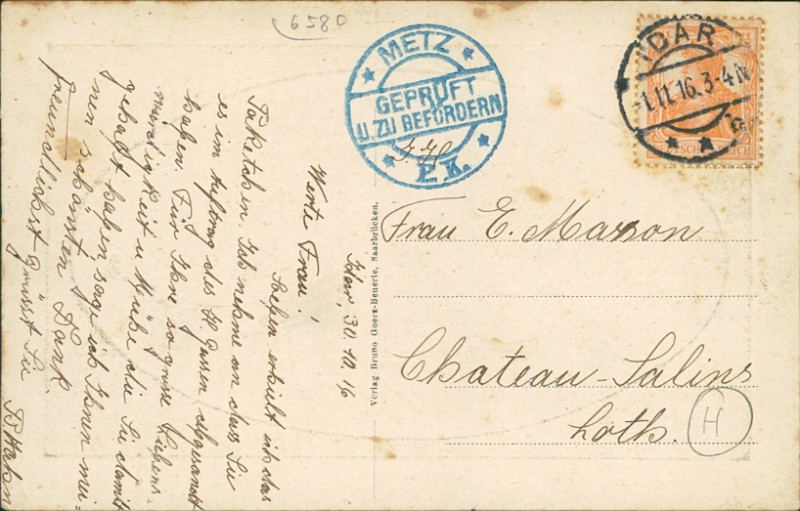 6580
METZ
GEPRÜFT
U. ZU BEFÖRDERN
P.K.
IDAR
-1.11.16. 3-4N
Frau E. Masson
Chateau-Salins
Loth.
H
Verlag Bruno Goers-Beuerle, Saarbrücken.
Idar, 30.10.16
Werte Frau!
Soeben erhielt ich das
Paketchen. Ich nehme an dass Sie
es im Auftrag des H. abgesandt
haben. Für Ihre so grosse Liebens-
würdigkeit u Mühe die Sie damit
gehabt haben sage ich Ihnen mei-
nen schönsten Dank.
freundlichst grüsst Sie
B Hahn